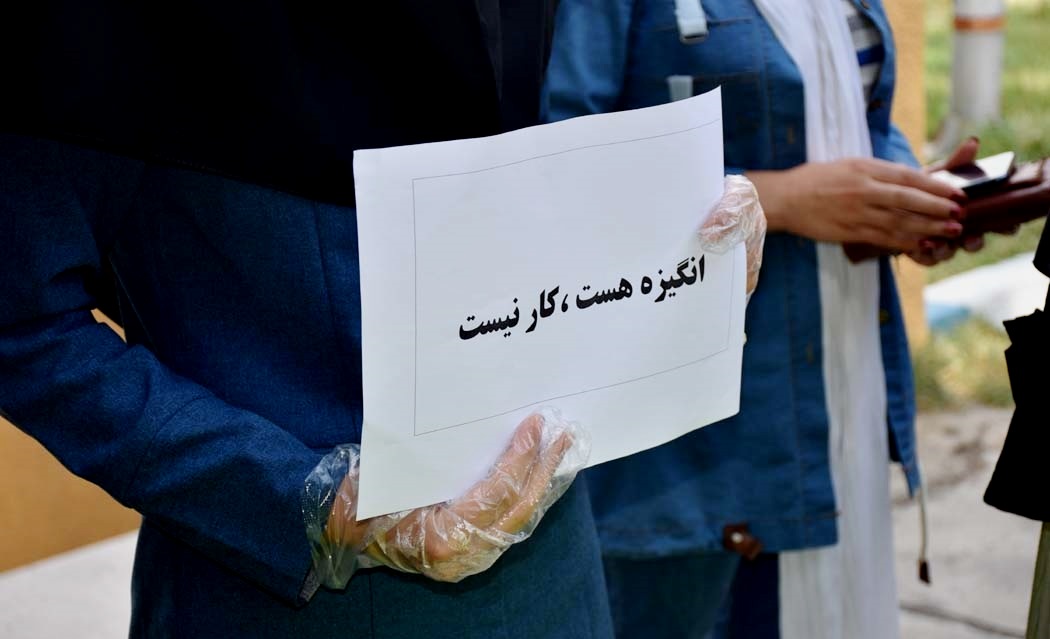 انگیزه هست ،کار نیست